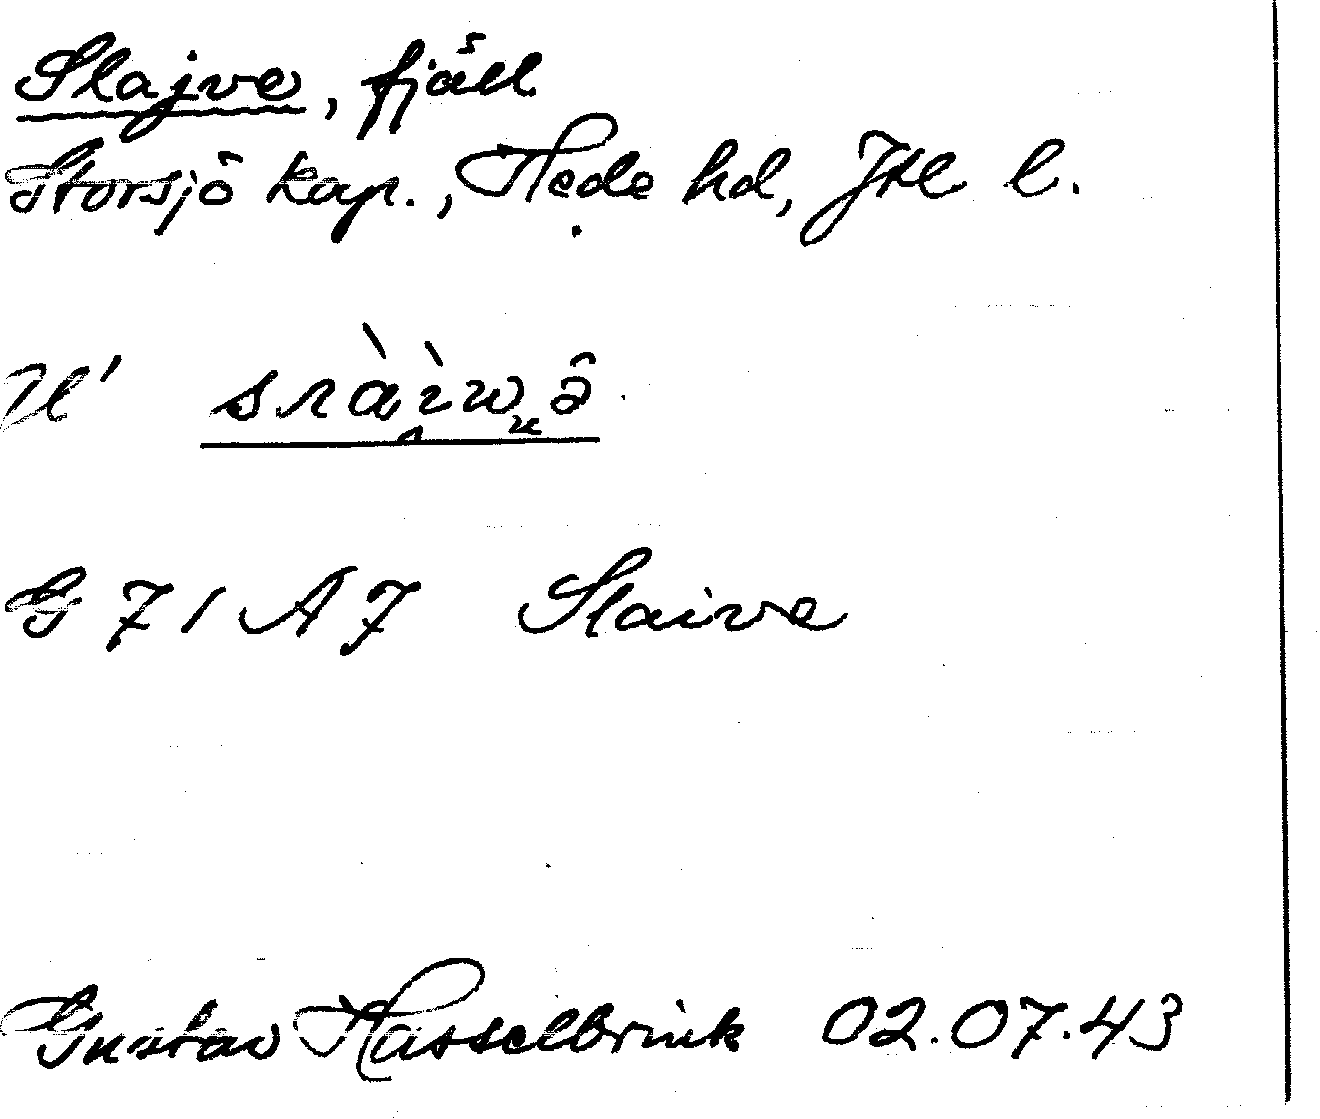 Slajve, fjäll
Storsjö kap., Hede hd, Jtl l.
G 71 A 7 Slaive
Gustav Hasselbrink 02.07.43